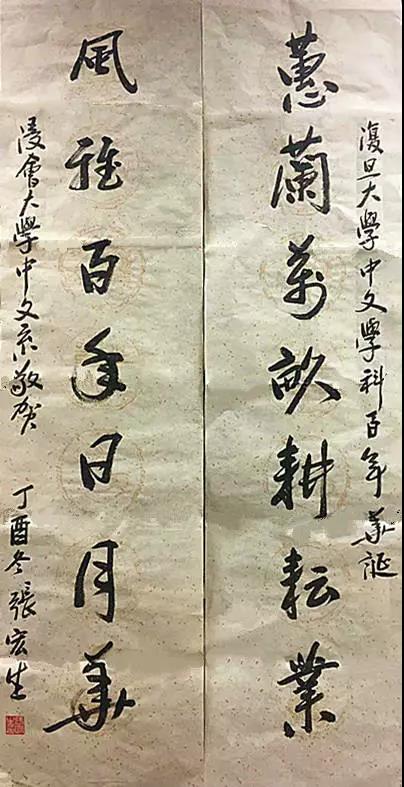 復旦大學中文學科百年華誕
蕙蘭萬畝耕耘業
風雅百年日月華
浸會大學中文系敬賀
丁酉冬張宏生